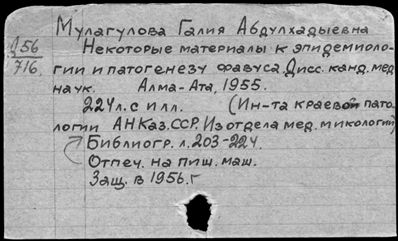 Мулагулова Галия Абдулхадыевна
Д56
716
Некоторые материалы к эпидемиоло-
гии и патогенезу фавуса. Дисс. канд. мед.
наук. Алма-Ата, 1955.
224 л. с илл. (Ин-та краевой пато-
логии АН Каз. ССР. Из отдела мед. микологии)
Библиогр. л. 203-224.
Отпеч. на пиш. маш.
Защ. в 1956. г